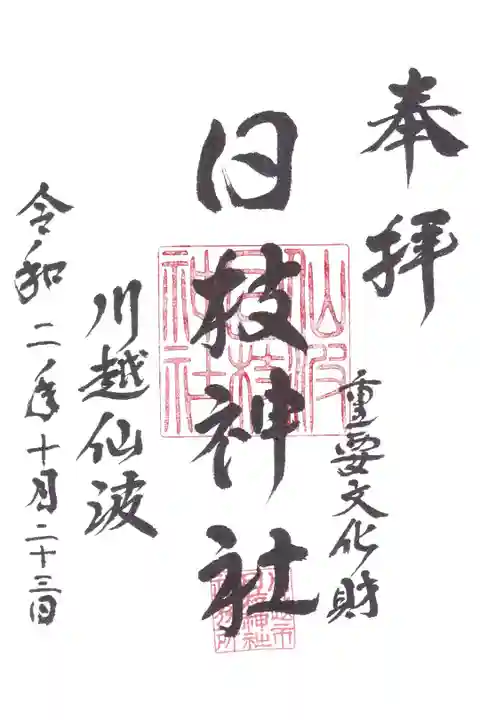 奉拝
重要文化財
日枝神社
川越仙波
令和二年十月二十三日
仙波日枝神社